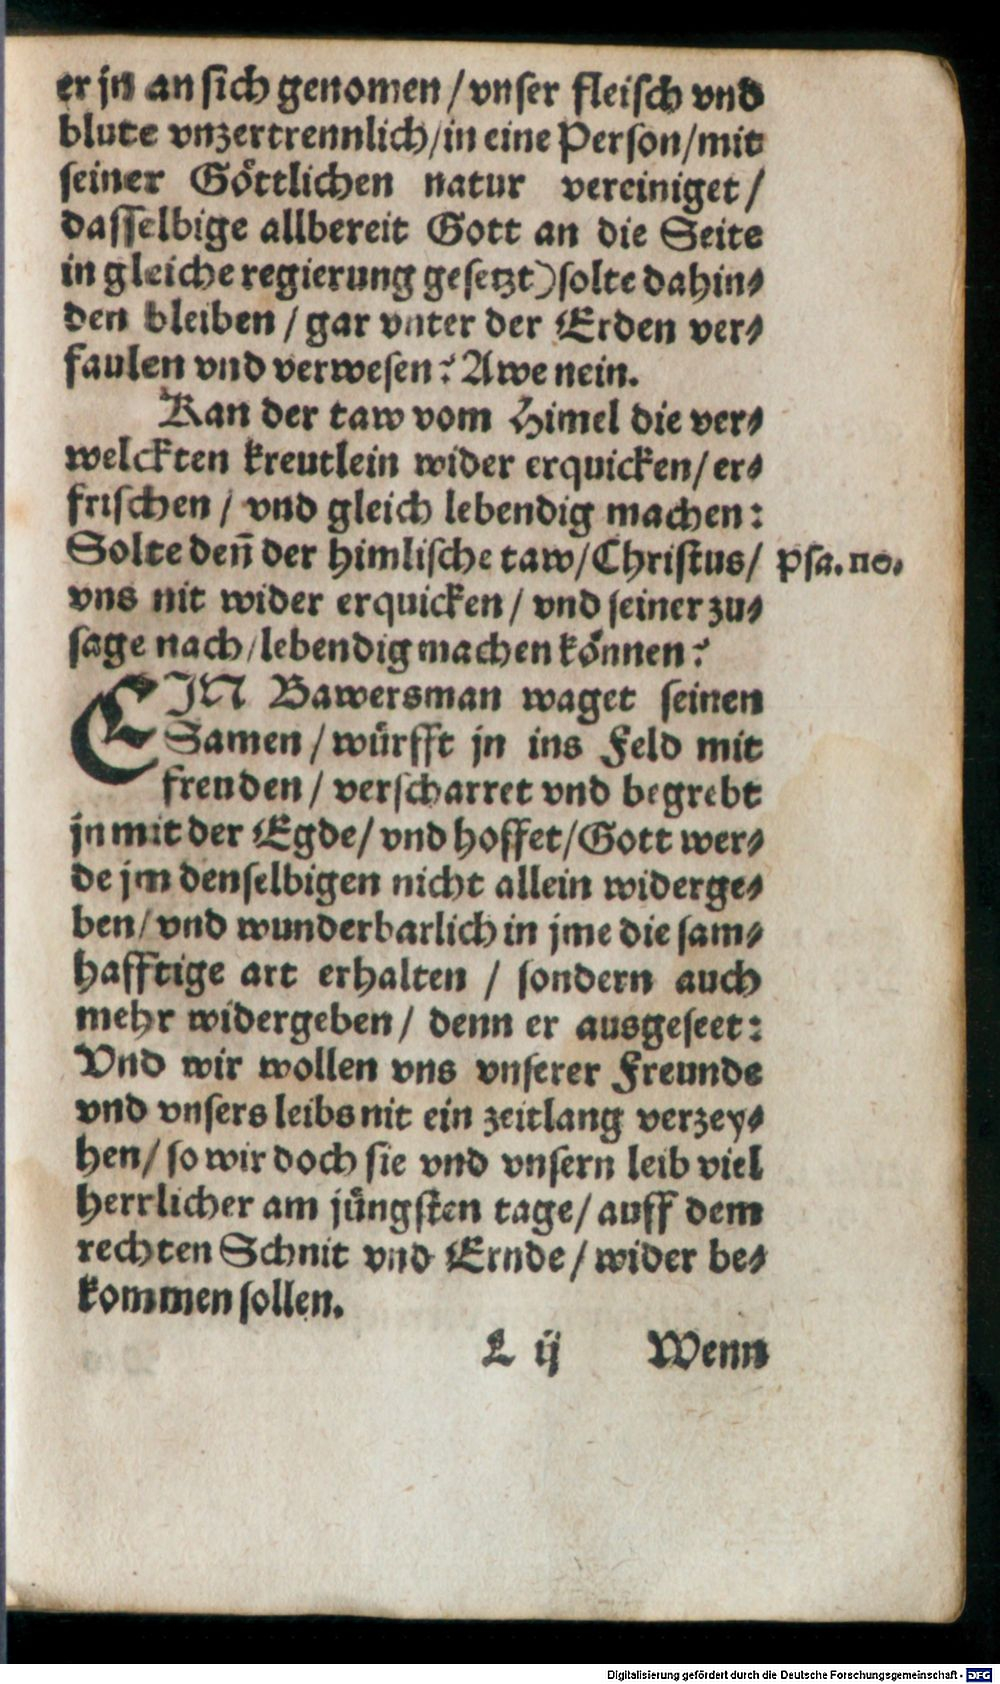 er jn an sich genomen / vnser fleisch vnd
blute vnzertrennlich / in eine Person / mit
seiner Göttlichen natur vereiniget /
dasselbige allbereit Gott an die Seite
in gleiche regierung gesetzt) solte dahin⸗
den bleiben / gar vnter der Erden ver⸗
faulen vnd verwesen? Awe nein.
Kan der taw vom Himel die ver⸗
welckten kreutlein wider erquicken / er⸗
frischen / vnd gleich lebendig machen:
Solte deñ der himlische taw / Christus / Psa. 110.
vns nit wider erquicken / vnd seiner zu⸗
sage nach / lebendig machen können?
EIN Bawersman waget seinen
Samen / würfft jn ins Feld mit
frenden / verscharret vnd begrebt
jn mit der Egde / vnd hoffet / Gott wer⸗
de jm denselbigen nicht allein widerge⸗
ben / vnd wunderbarlich in jme die sam⸗
hafftige art erhalten / sondern auch
mehr widergeben / denn er ausgeseet:
Vnd wir wollen vns vnserer Freunde
vnd vnsers leibs nit ein zeitlang verzey⸗
hen / so wir doch sie vnd vnsern leib viel
herrlicher am jüngsten tage / auff dem
rechten Schnit vnd Ernde / wider be⸗
kommen sollen.
L ij Wenn
Digitalisierung gefördert durch die Deutsche Forschungsgemeinschaft - DFG